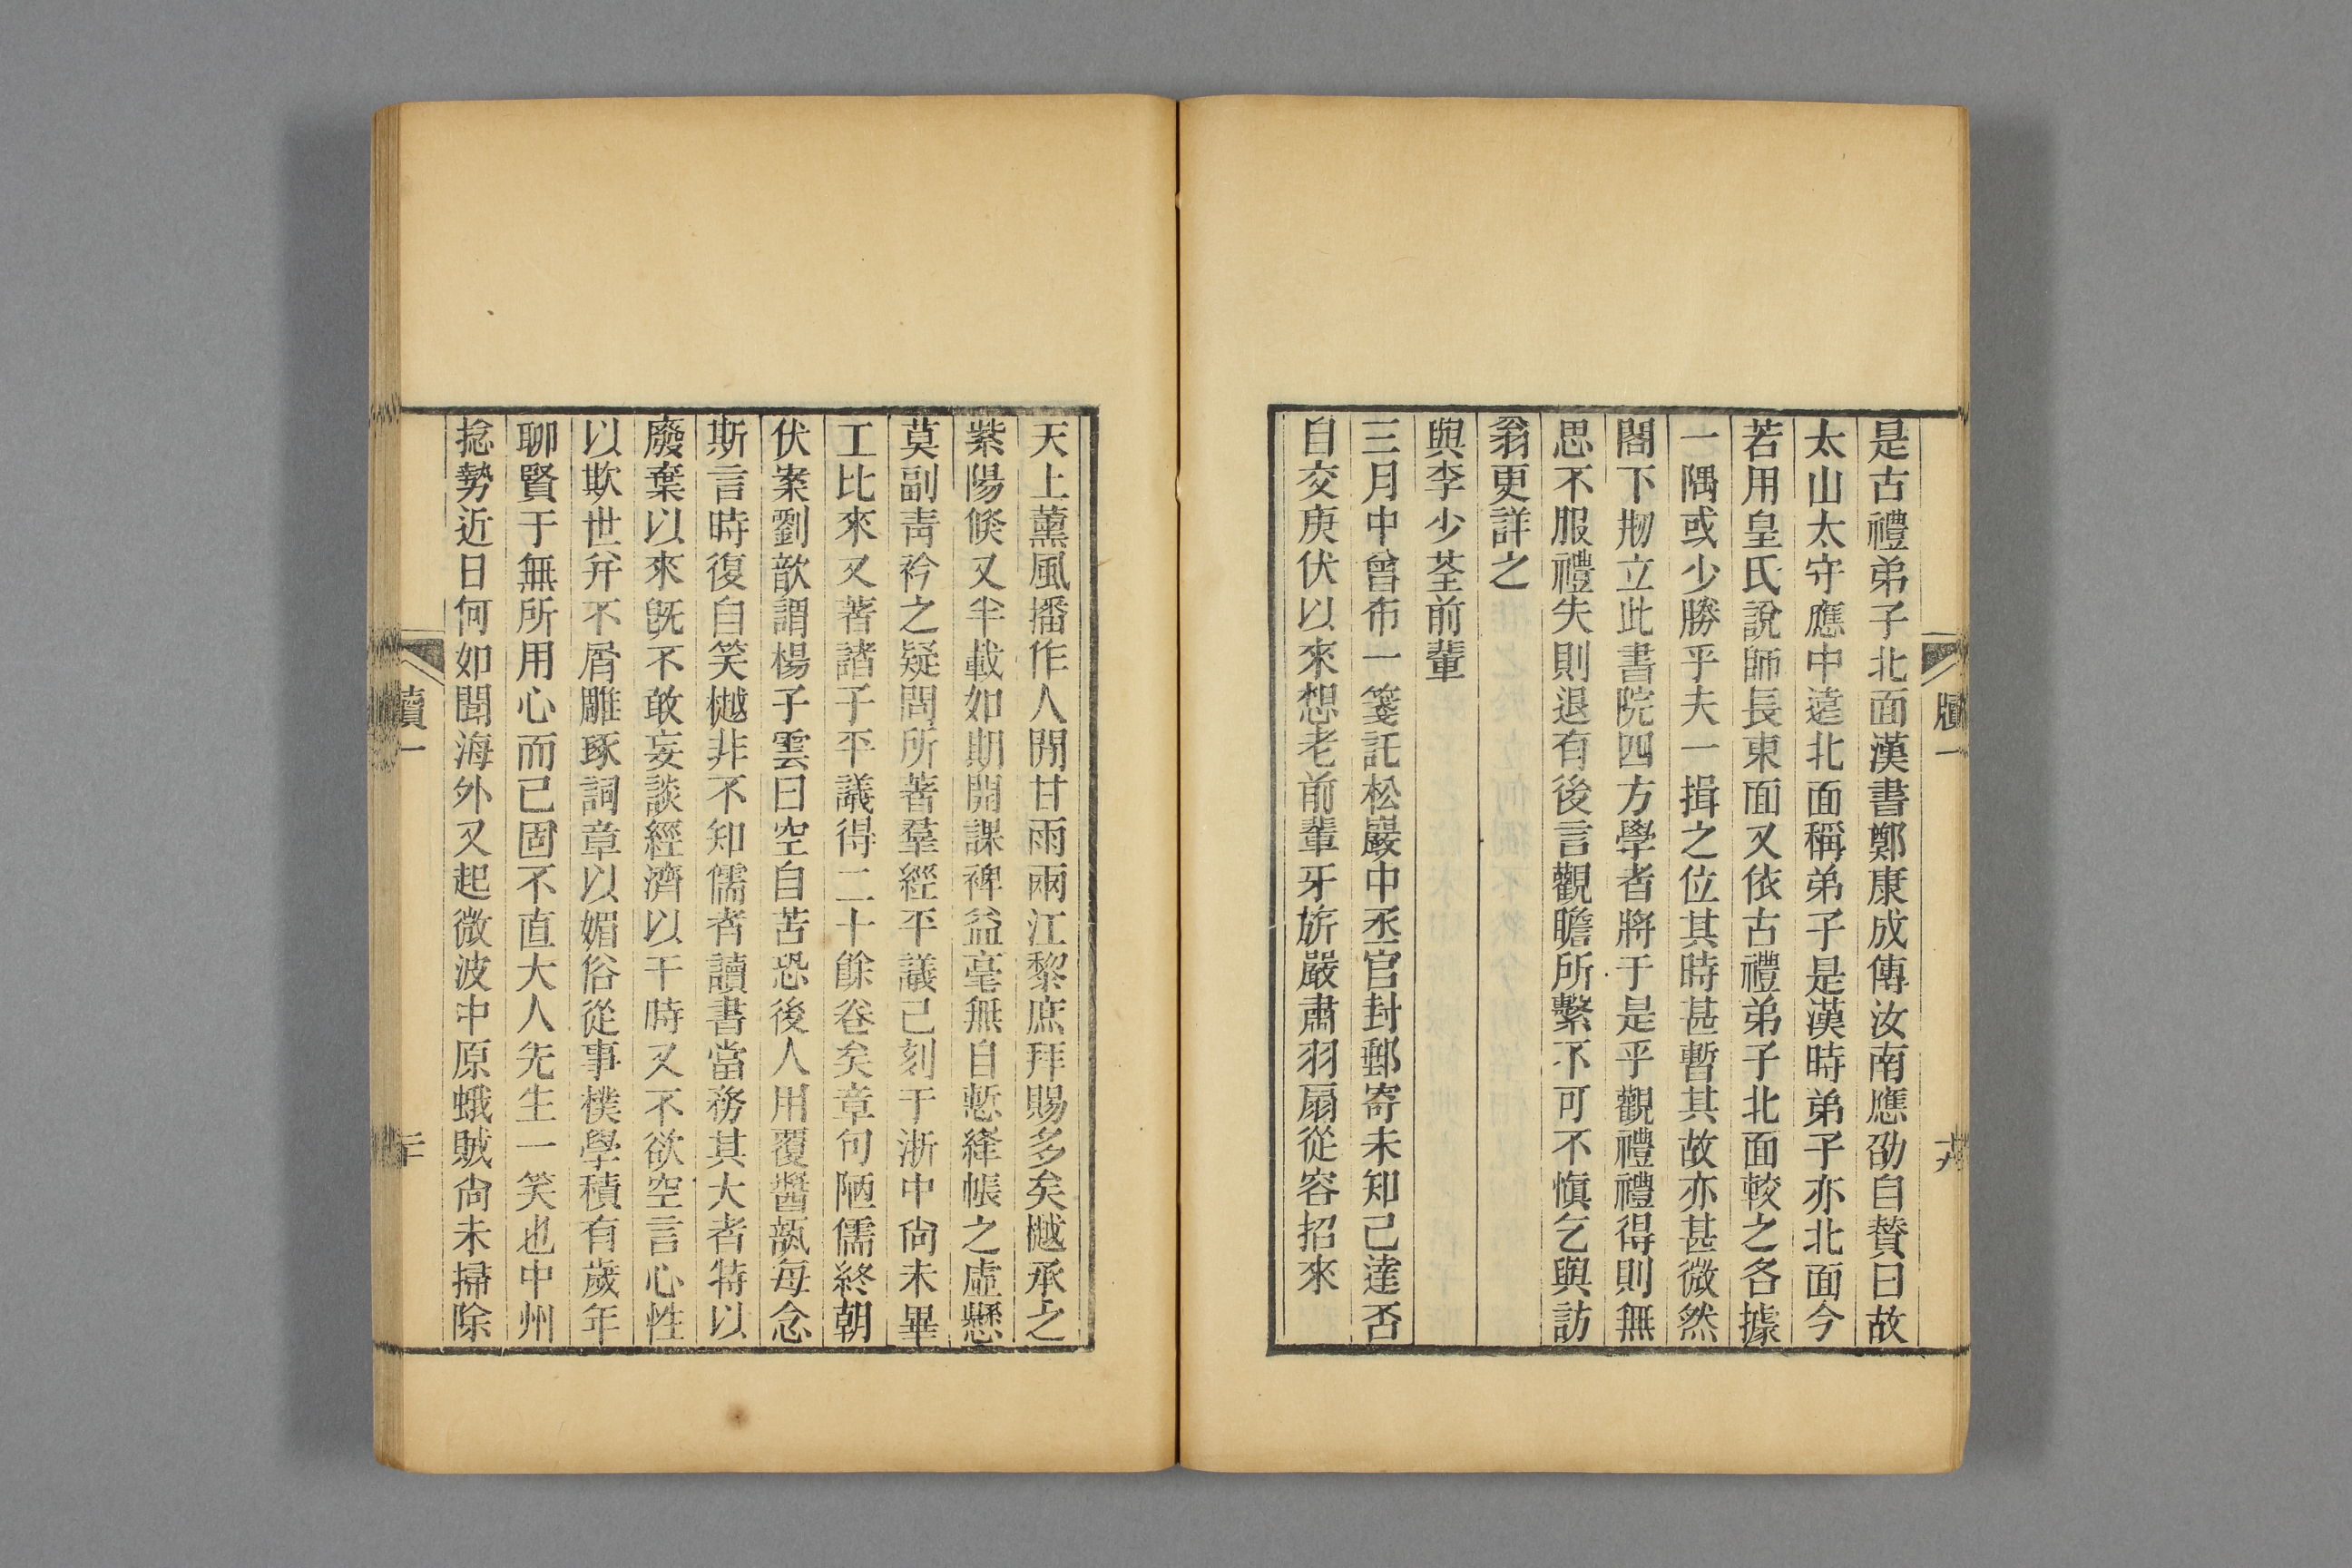 是古禮弟子北面漢書鄭康成傳汝南應劭自贊曰故
太山太守應中遠北面稱弟子是漢時弟子亦北面今
若用皇氏說師長東面又依古禮弟子北面較之各據
一隅或少勝乎夫一揖之位其時甚暫其故亦甚微然
閣下剏立此書院四方學者將于是乎觀禮禮得則無
思不服禮失則退有後言觀瞻所繫不可不愼乞與訪
翁更詳之
與李少荃前輩
三月中曾布一箋託松巖中丞官封郵寄未知已達否
自交庚伏以來想老前輩牙旂嚴肅羽扇從容招來
牘一
十九
天上薰風播作人閒甘雨兩江黎庶拜賜多矣樾承之
紫陽倏又半載如期開課裨益毫無自慙絳帳之虛懸
莫副靑衿之疑問所著羣經平議已刻于浙中尙未畢
工比來又著諸子平議得二十餘卷矣章句陋儒終朝
伏案劉歆謂楊子雲曰空自苦恐後人用覆醬瓿每念
斯言時復自笑樾非不知儒者讀書當務其大者特以
廢棄以來旣不敢妄談經濟以干時又不欲空言心性
以欺世弁不屑雕琢詞章以媚俗從事樸學積有歲年
聊賢于無所用心而已固不直大人先生一笑也中州
捻勢近日何如聞海外又起微波中原蛾賊尙未掃除
牘一
二十